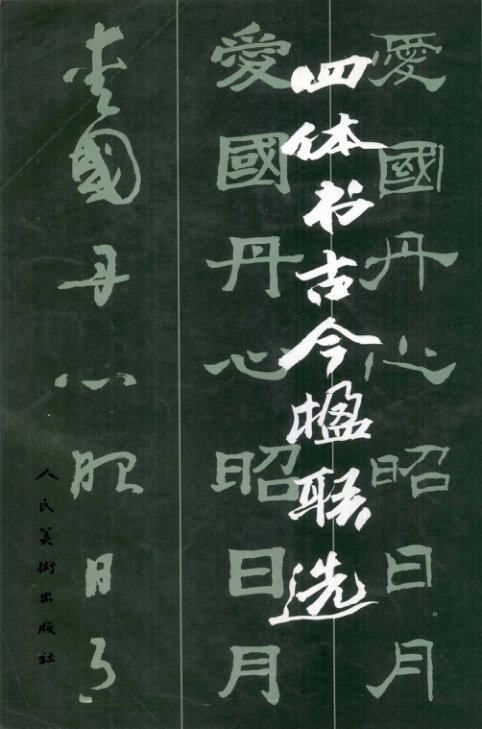 愛國丹心昭日月
四体书古今楹联选
愛國丹心昭日月
愛國丹心昭日月
人民美術出版社